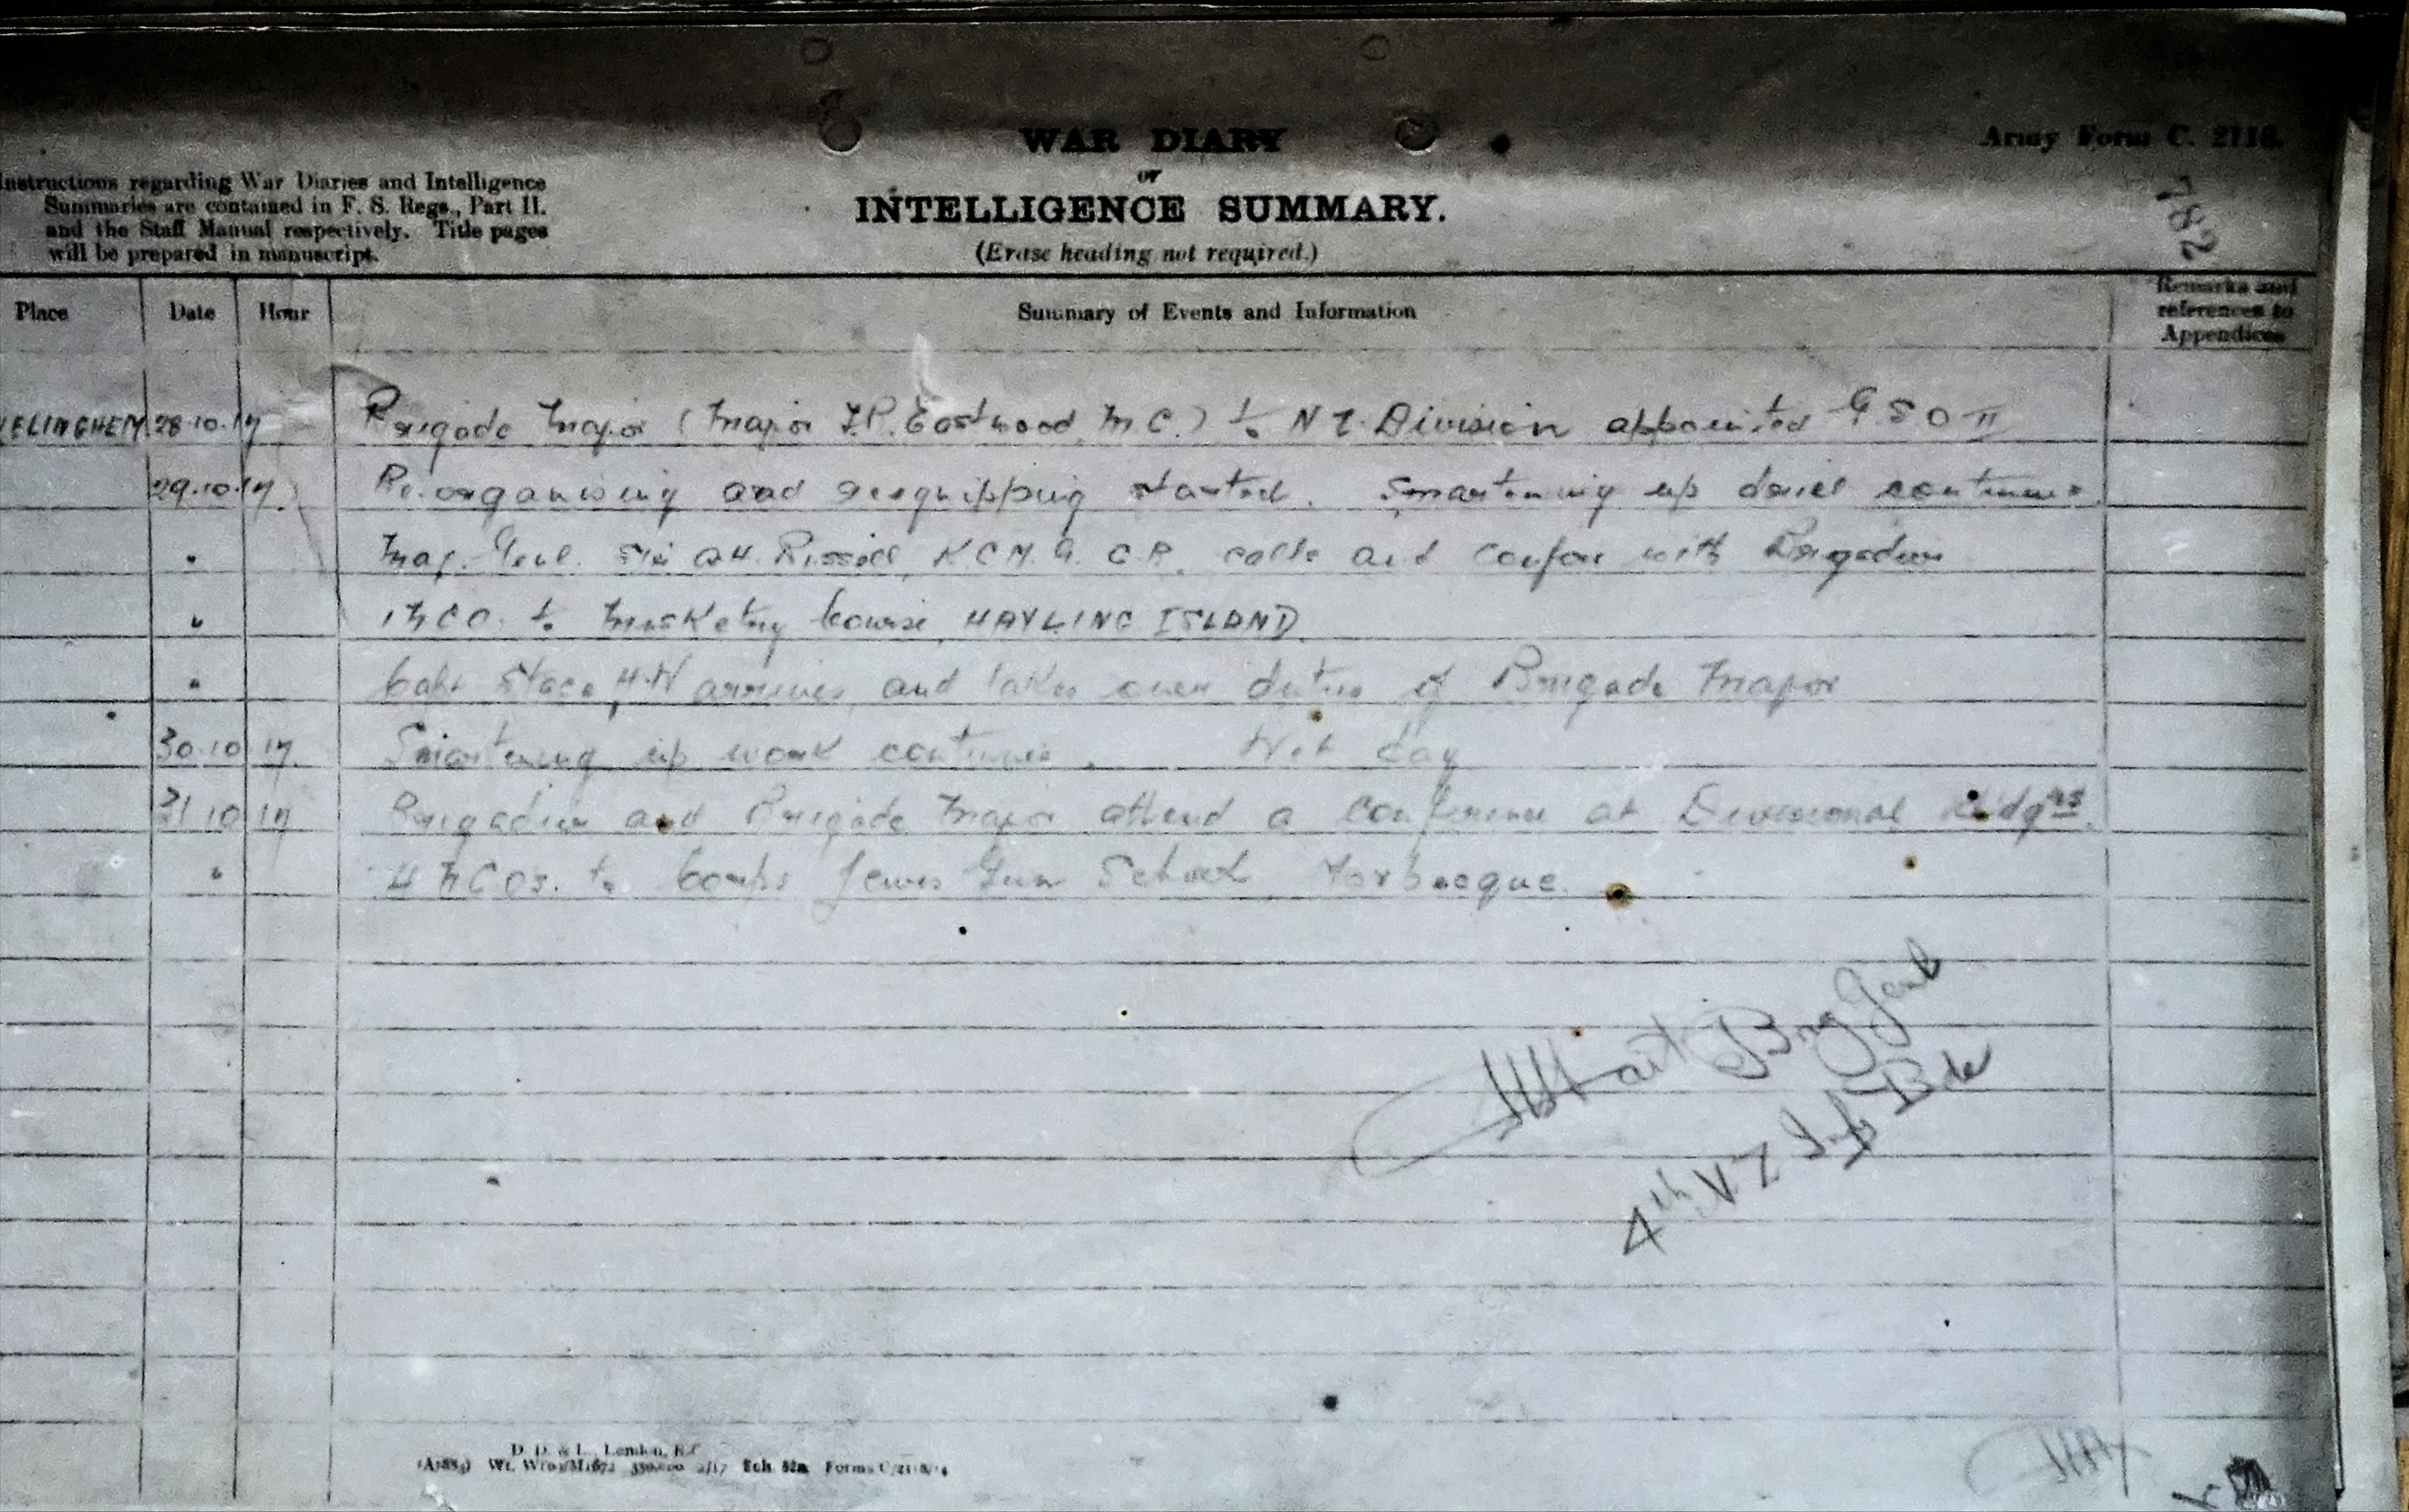 WAR DIARY
or
INTELLIGENCE SUMMARY.
(Erase heading not required.)
Army Form C. 2118.
782
Instructions regarding War Diaries and Intelligence
Summaries are contained in F. S. Regs., Part II.
and the Staff Manual respectively. Title pages
will be prepared in manuscript.
Place Date Hour Summary of Events and Information Remarks and references to Appendices
ELINGHEM 28.10.17 Brigade Major (Major T.R. Eastwood M.C.) to N Z Division appointed G S O II
29.10.17. Re-organising and reequipping started. Smartening up drill continues.
" Maj. Genl. Sir A H. Russell, K C M. G. C B. calls and confers with Brigadier
" 1 NCO. to Musketry Course, HAYLING ISLAND.
" Capt Stace, H.N arrives, and takes over duties of Brigade Major
30.10.17. Smartening up work continues. Wet day
31.10.17 Brigadier and Brigade Major attend a conference at Divisional Hdqrs.
" 4 NCOs. to Corps Lewis Gun School
Hart Brig Genl
4th N Z Inf Bde
D. D. & L., London, E.C.
Sch. 52a Forms